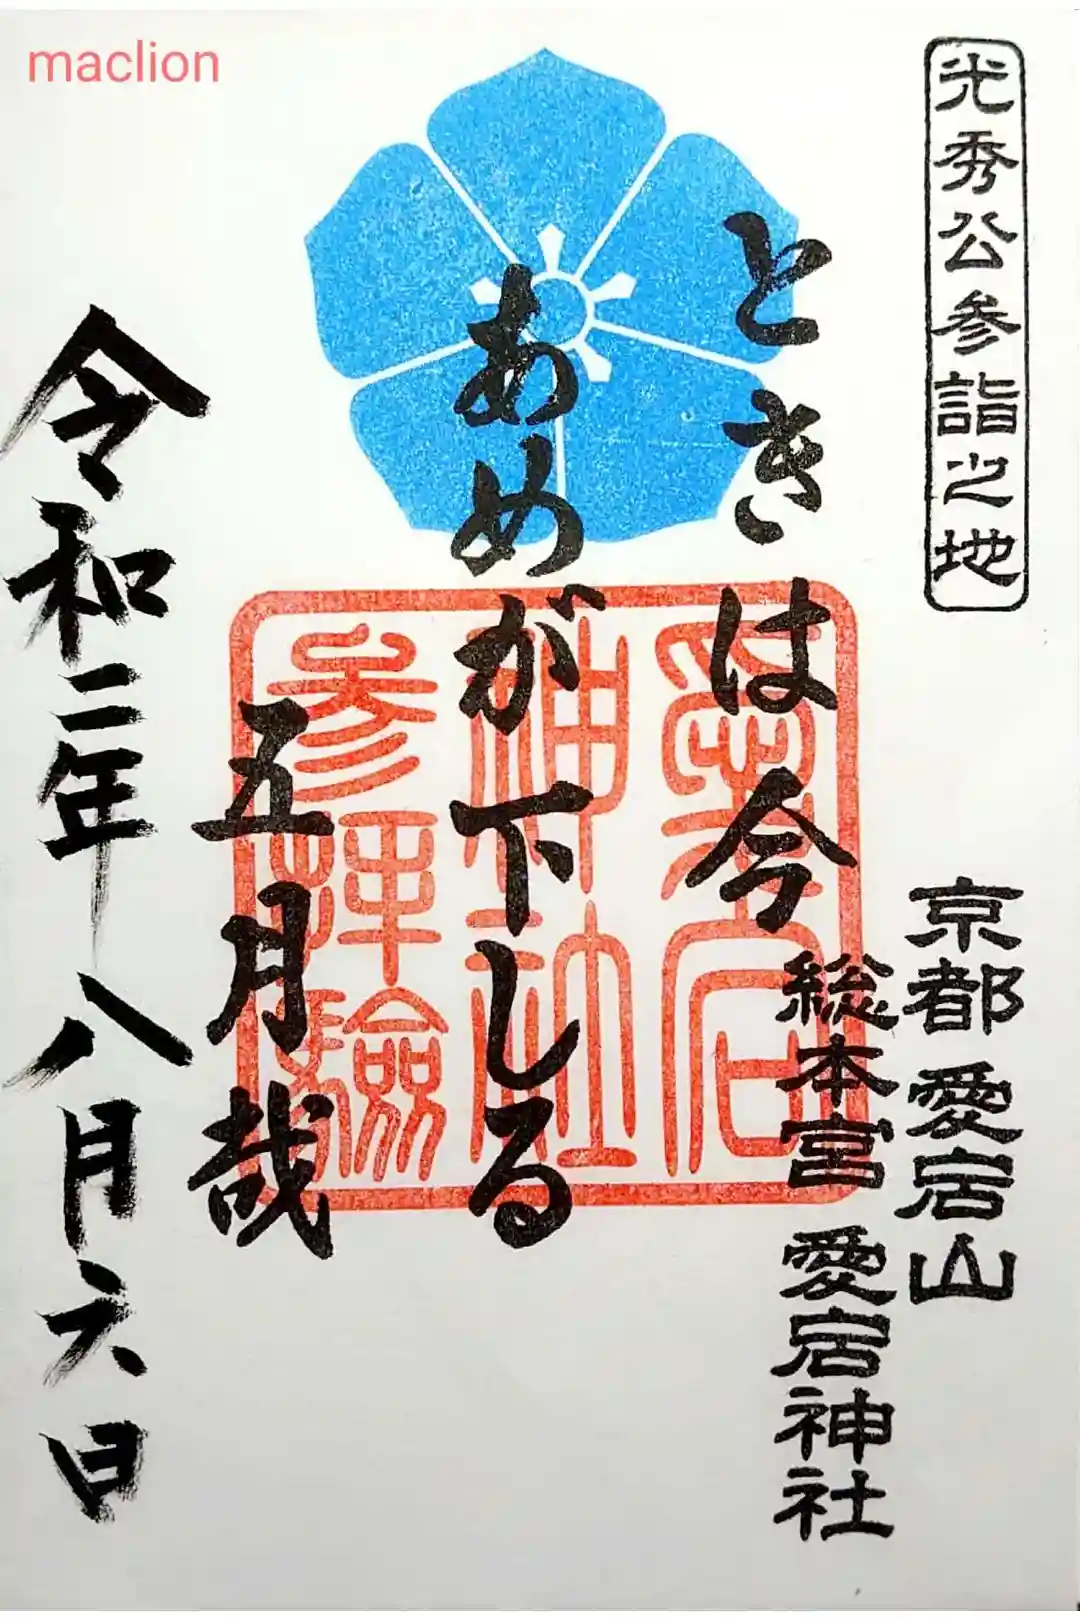 maclion
光秀公参詣之地
京都 愛宕山
総本宮 愛宕神社
ときは今
あめが下しる
五月哉
愛宕
神社
参拝
験
令和二年八月六日